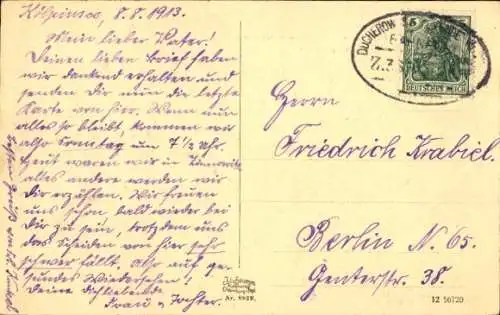 Kölpinsee, 8.8.1913.
Mein lieber Vater!
Deinen lieben Brief haben
wir dankend erhalten und
senden Dir nun die letzte
Karte von hier. Wenn nun
alles so bleibt, kommen wir
also Sonntag um 7 1/2 Uhr.
Heut waren wir in Zinnowitz
alles andere werden wir
Dir erzählen. Wir freuen
uns schon, bald wieder bei
Dir zu sein, trotzdem uns
das Scheiden von hier sehr
schwer fällt. Also auf ge-
sundes Wiedersehen!
Deine Dichliebende
Frau u. Tochter.
Besten Gruß
DUCHEROW
Z.3
5
DEUTSCHES REICH
Herrn
Friedrich Krabiel.
Berlin N. 65.
Genterstr. 38.
Nr.
12 50720